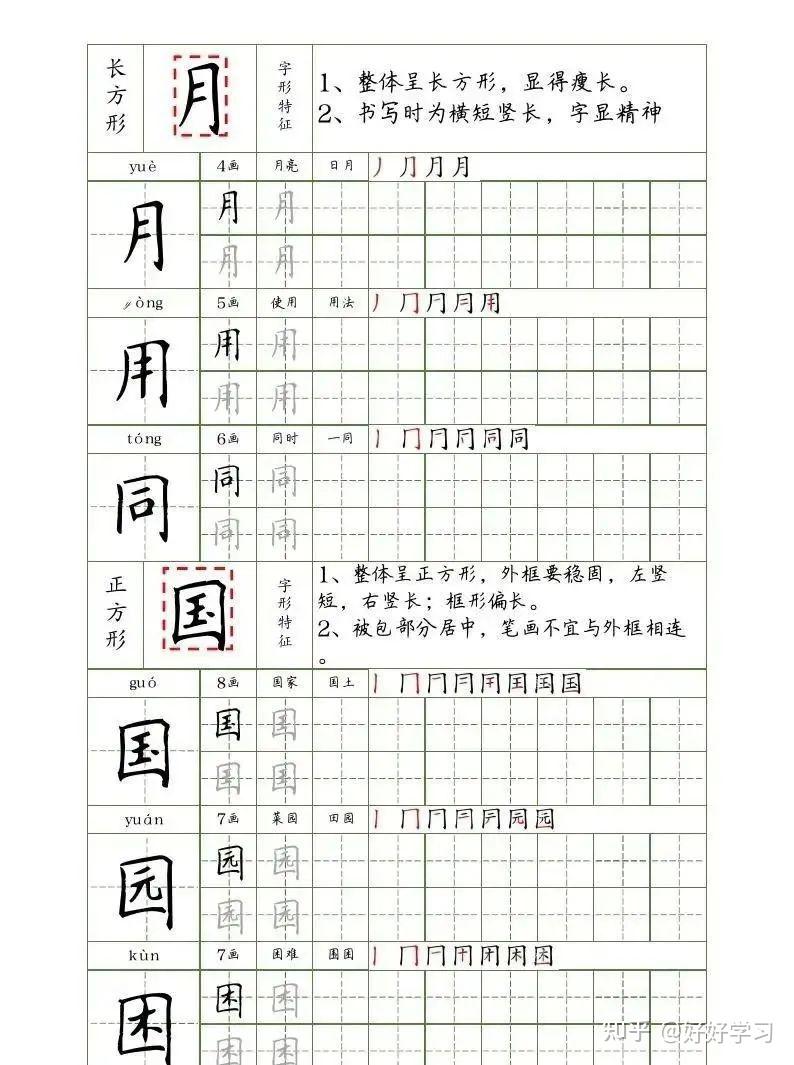 长方形
月
字形特征
1、整体呈长方形，显得瘦长。
2、书写时为横短竖长，字显精神
yuè 4画 月亮 日月 丿 ⺆ 月 月
月 月 月
月 月
yòng 5画 使用 用法
用 用 用
用 用
tóng 6画 同时 一同
同 同 同
同 同
正方形
国
字形特征
1、整体呈正方形，外框要稳固，左竖
短，右竖长；框形偏长。
2、被包部分居中，笔画不宜与外框相连
。
guó 8画 国家 国土
国 国 国
国 国
yuán 7画 菜园 田园
园 园 园
园 园
kùn 7画 困难 围困
困 困 困
困 困
知乎 @好好学习